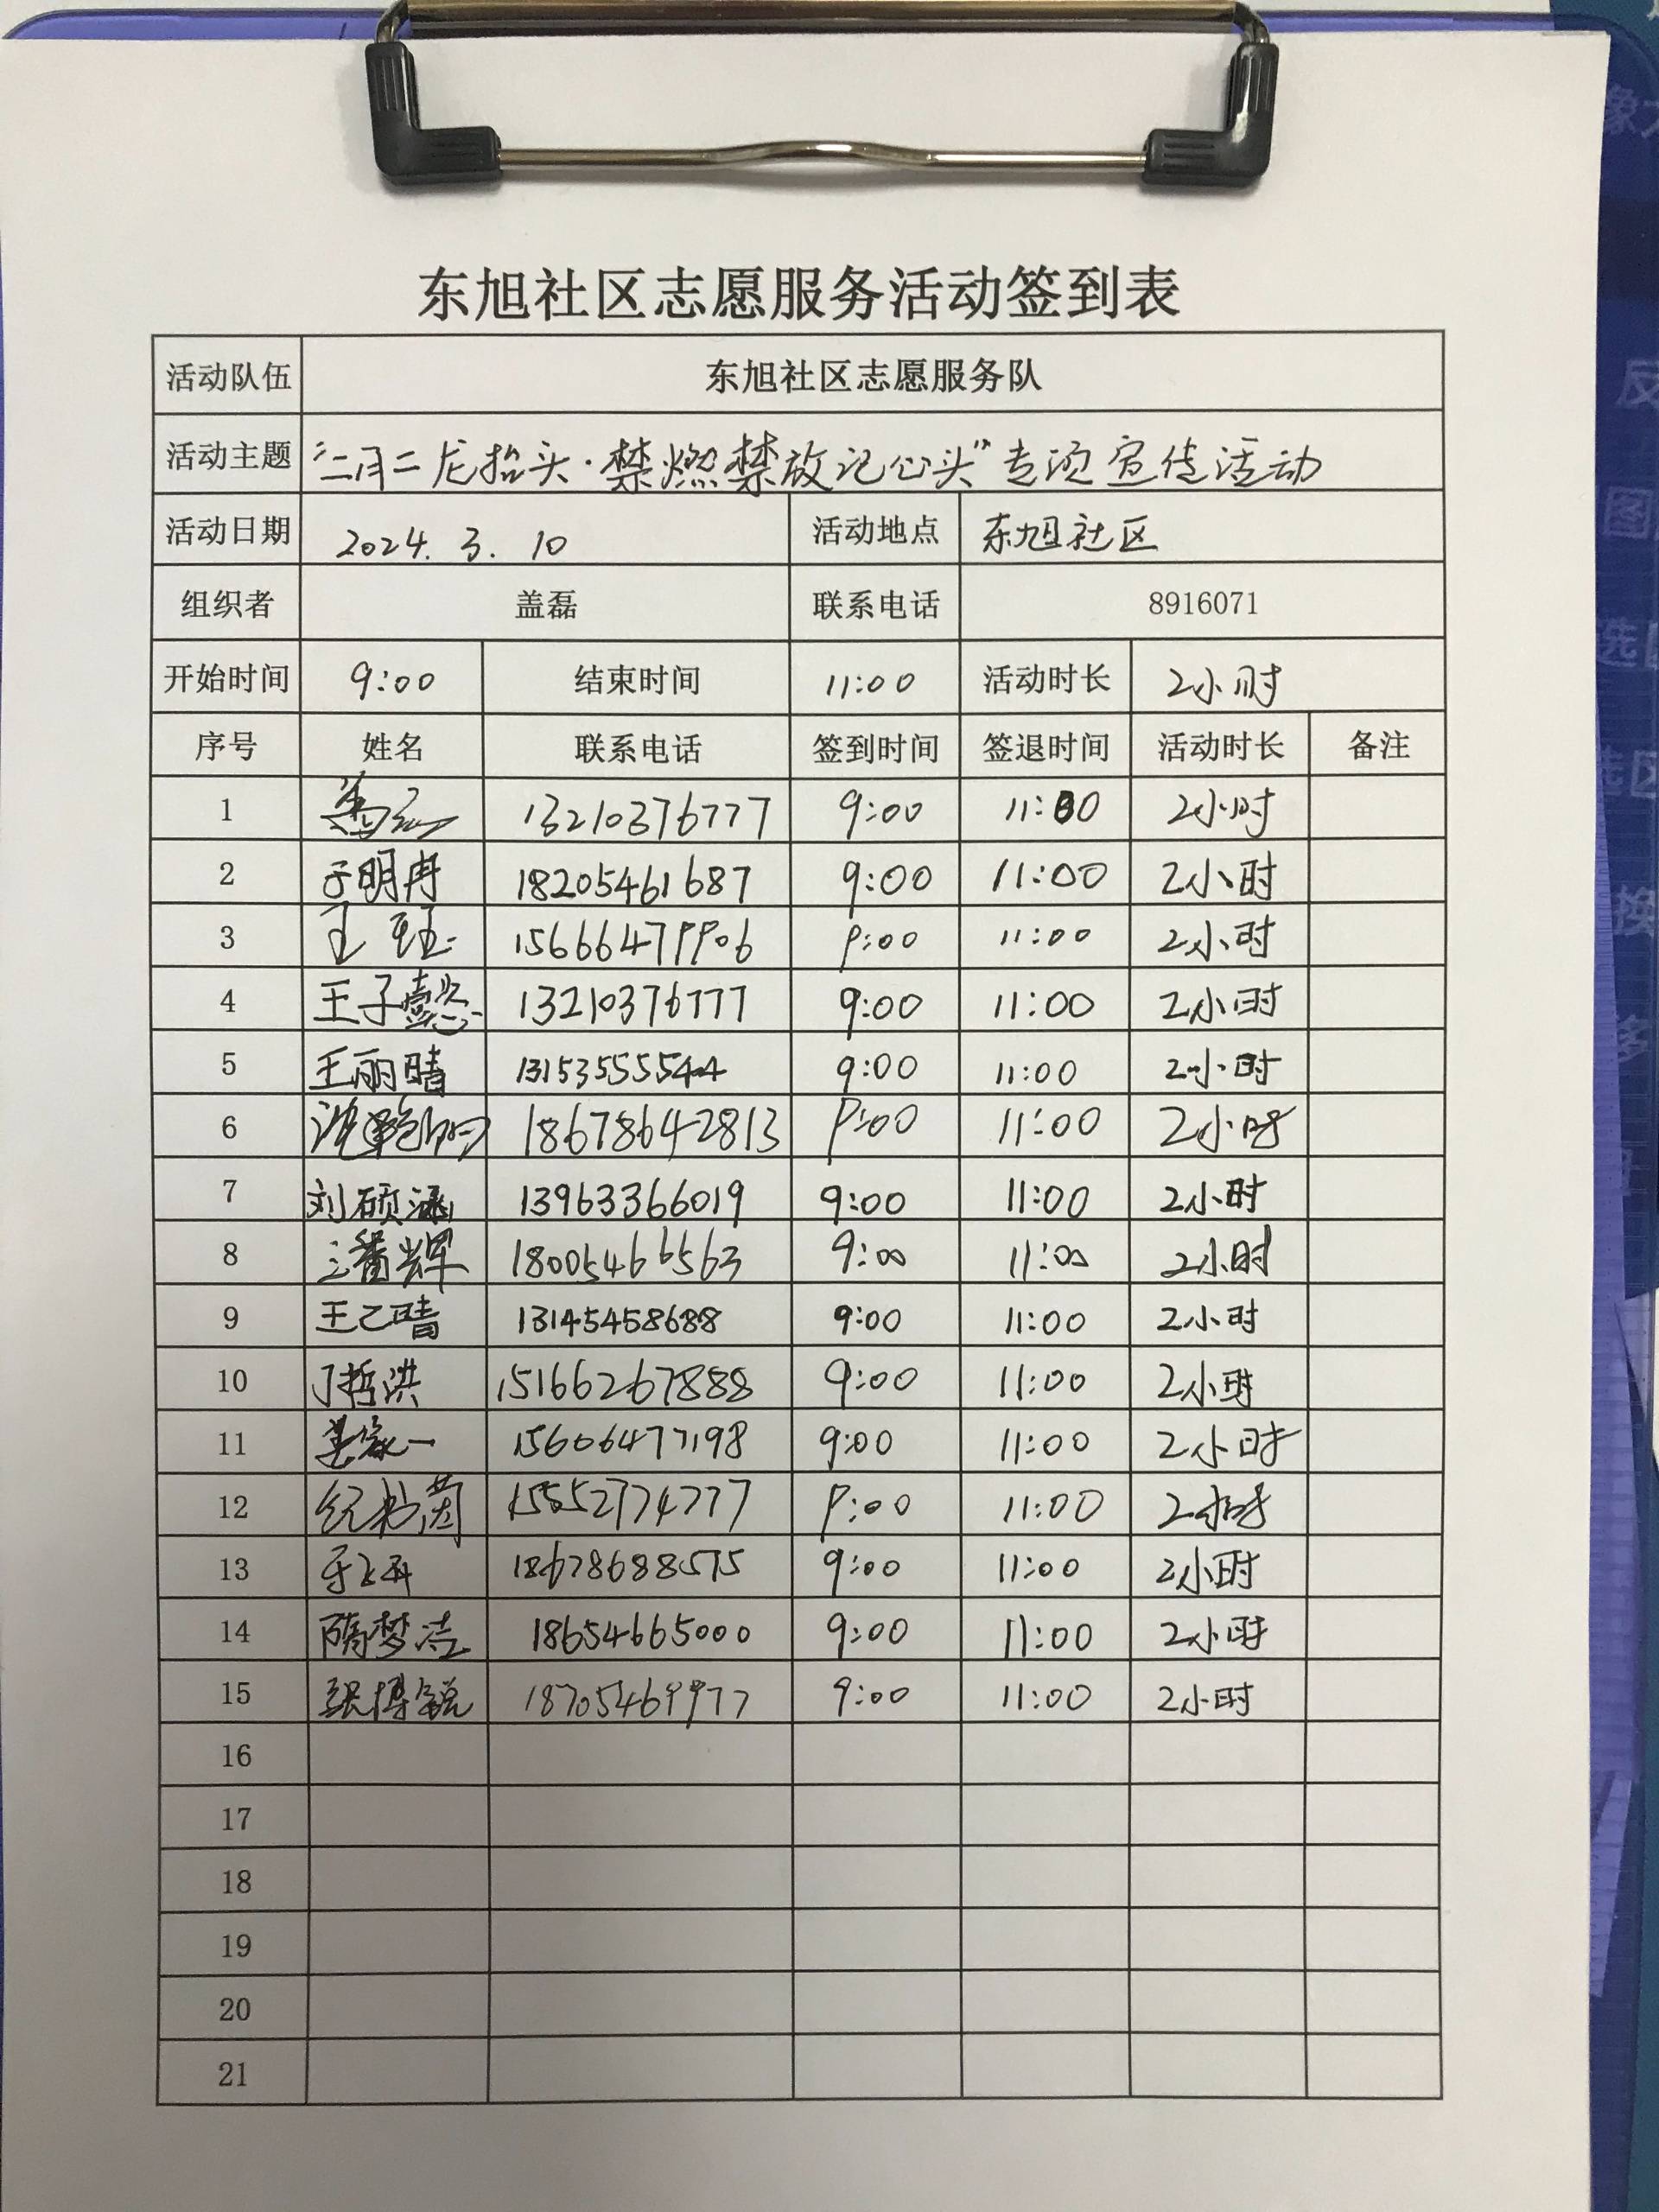 东旭社区志愿服务活动签到表
活动队伍 东旭社区志愿服务队
活动主题 “二月二龙抬头·禁燃禁放记心头”专项宣传活动
活动日期 2024. 3. 10 活动地点 东旭社区
组织者 盖磊 联系电话 8916071
开始时间 9:00 结束时间 11:00 活动时长 2小时
序号 姓名 联系电话 签到时间 签退时间 活动时长 备注
1 13210376777 9:00 11:00 2小时
2 于明冉 18205461687 9:00 11:00 2小时
3 王 15666479906 9:00 11:00 2小时
4 王子懿 13210376777 9:00 11:00 2小时
5 王丽晴 13153555544 9:00 11:00 2小时
6 18678642813 9:00 11:00 2小时
7 刘硕涵 13963366019 9:00 11:00 2小时
8 18005466563 9:00 11:00 2小时
9 王乙晴 13145458688 9:00 11:00 2小时
10 丁哲洪 15166267888 9:00 11:00 2小时
11 15606477198 9:00 11:00 2小时
12 15552774777 9:00 11:00 2小时
13 18678688575 9:00 11:00 2小时
14 隋梦洁 18654665000 9:00 11:00 2小时
15 张博锐 18705469977 9:00 11:00 2小时
16
17
18
19
20
21